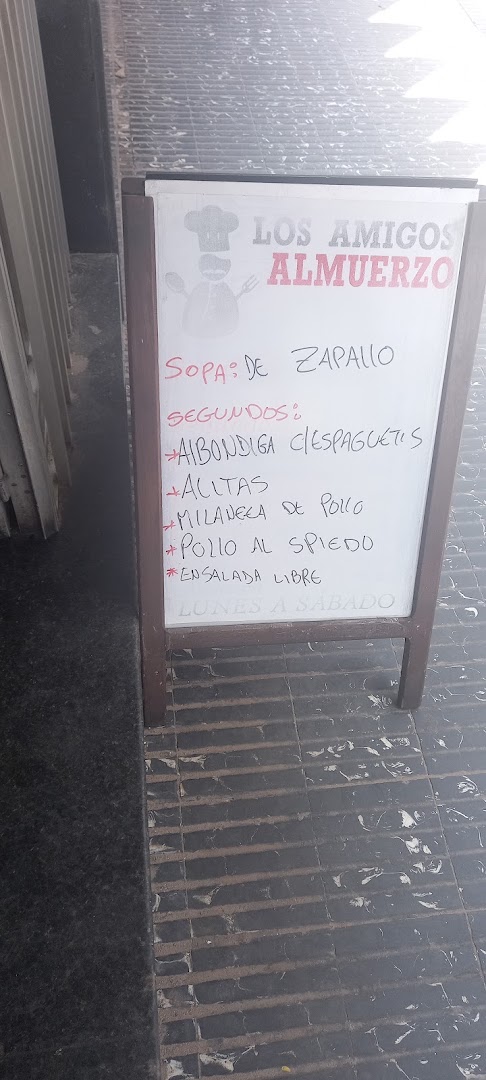 LOS AMIGOS
ALMUERZO
SOPA: DE ZAPALLO
SEGUNDOS:
* AlBONDIGA C/ESPAGUETIS
* ALITAS
* MILANECA DE POLLO
* POLLO AL SPIEDO
* ENSALADA LIBRE
LUNES A SABADO